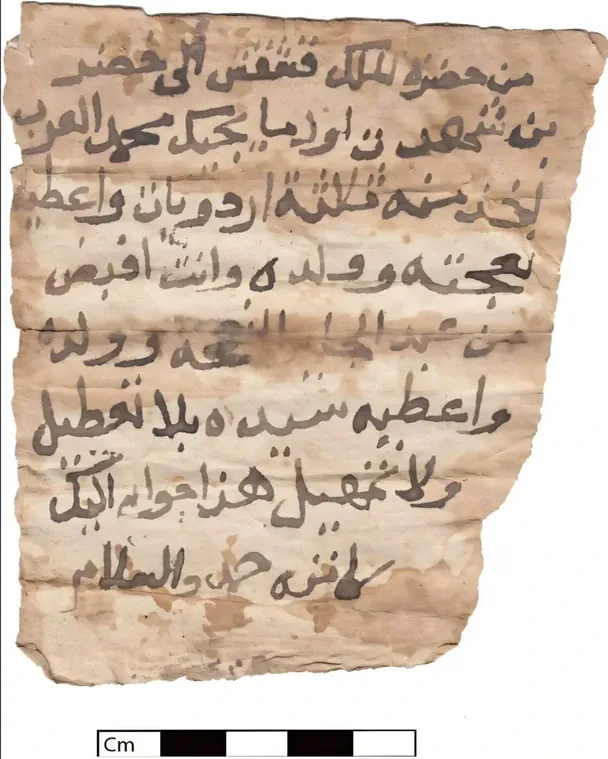 من حضرة الملك قشقش الى خضر
بن شهدت اول ما يجيك محمد العرب
لخذ منه ثلاثة اردويات واعطيه
نعجته وولده وانت اقبض
من عبد الجابر النعجه وولده
واعطيه سيده بلا تعطيل
ولا تمهيل هذا جوابي اليك
لا غيره حد والسلام